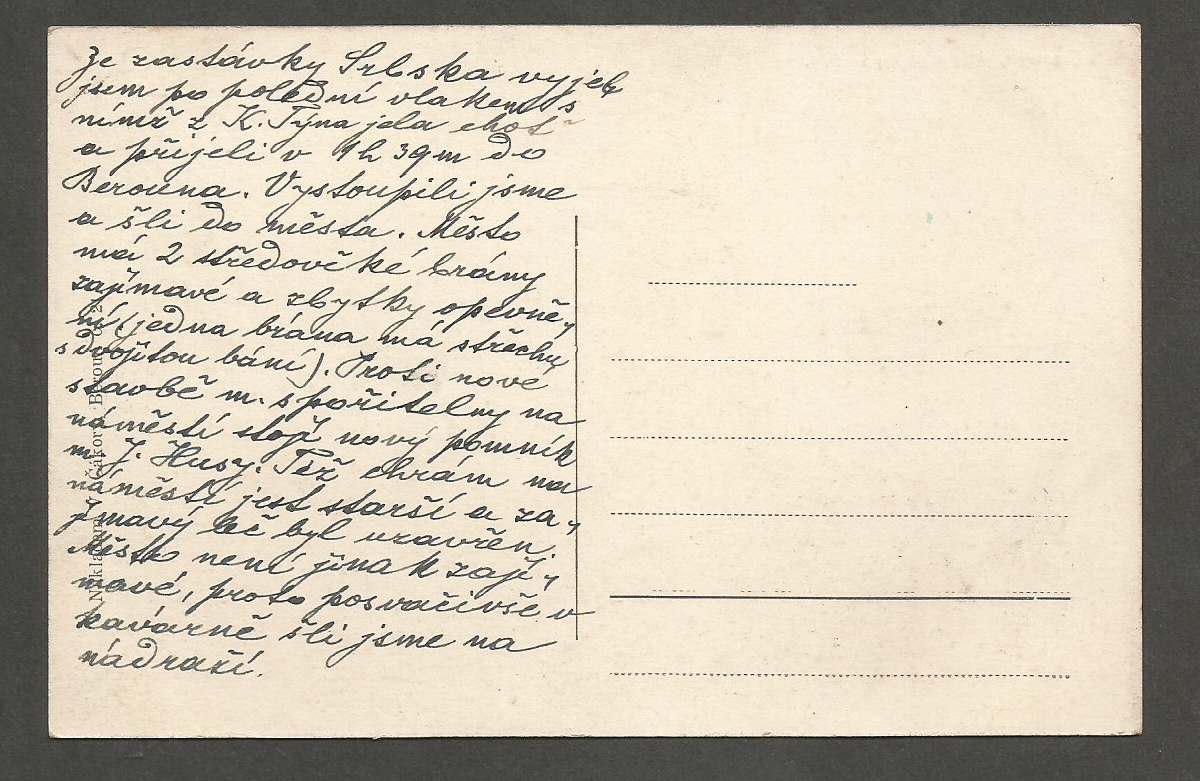 Ze zastávky Srbska vyjel
jsem po polední vlakem s
nímž z K. Týna jela choť
a přijeli v 1h 39m do
Berouna. Vystoupili jsme
a šli do města. Město
má 2 středověké brány
zajímavé a zbytky opevně-
ní (jedna brána má střechu
s dvojitou bání). Proti nové
stavbě m. spořitelny na
náměstí stojí nový pomník
m. J. Husy. Též chrám na
náměstí jest starší a za-
jímavý leč byl uzavřen.
Město není jinak zají-
mavé, proto posvačivše v
kavárně šli jsme na
nádraží.
Nákladem V. Čakort, Beroun